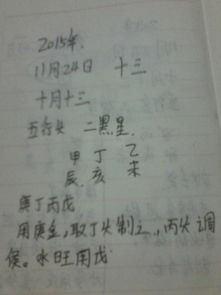 2015年.
11月24日 十三
十月十三
五行火 二黑星.
甲 丁 乙
辰. 亥 未
庚丁丙戊
用庚金,取丁火制之,丙火调
候。水旺用戊